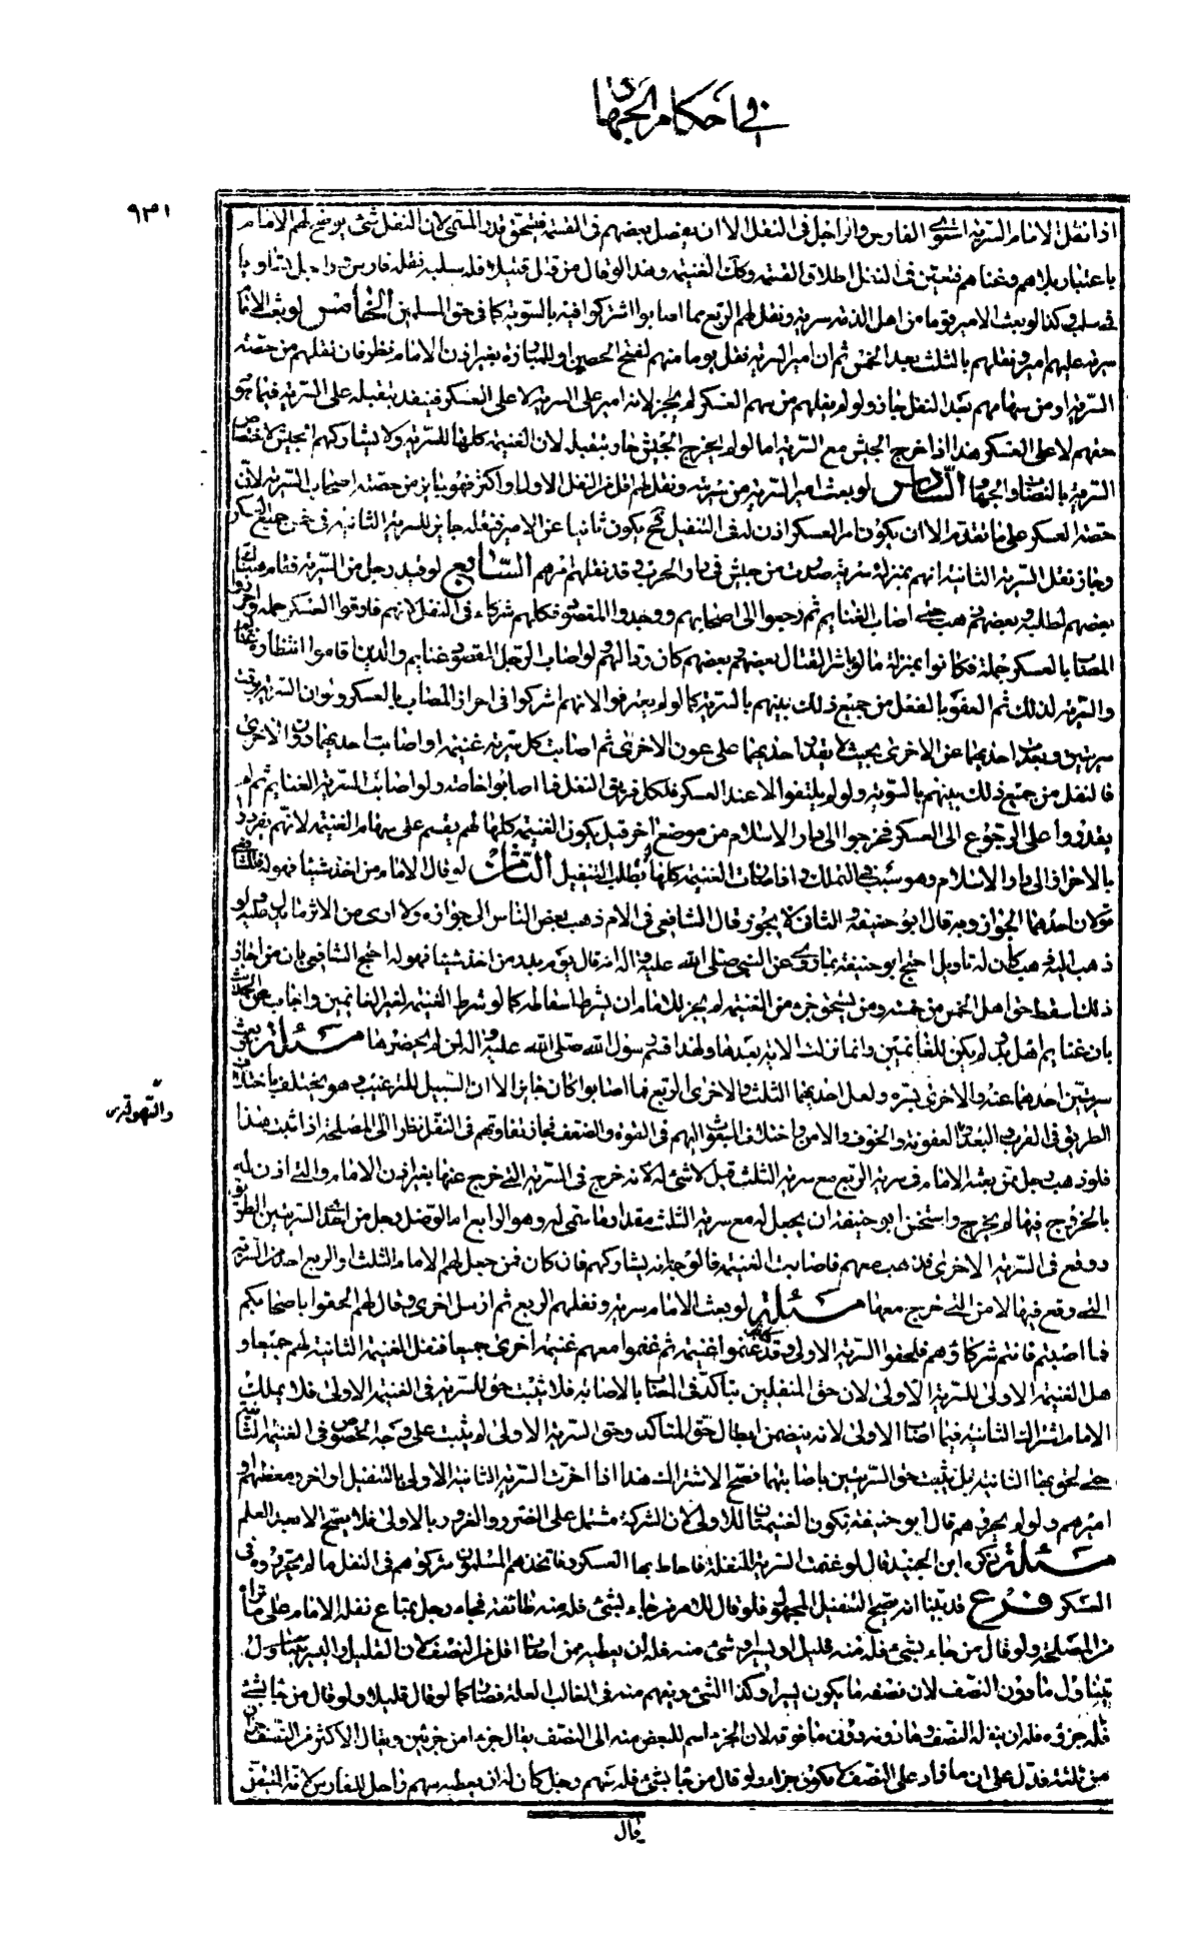 في احكام الجهاد
٩٣١
اذا نفل الامام السرية استوى الفارس والراجل في النفل الا ان يفضل بعضهم في القسمة فيستحق قدر المسمى لان النفل شئ يوضح لهم الامام
باعتبار بلائهم وغنائهم فيعتبر في النفل اطلاق القسمة وكذا الغنيمة وهذا لو قال من قتل قتيلا فله سلبه نقله فارس راجل تساويا
في سلبه وكذا لو بعث الامير قوما من اهل الذمة سرية ونفل لهم الربع مما اصابوا اشتركوا فيه بالسوية كما في حق المسلمين الخامس لو بعث الامام
سرية عليهم امير ونفلهم بالثلث بعد الخمس ثم ان امير السرية نفل يوما منهم لفتح الحصين او للمبارزة بغير اذن الامام نظر فان نفلهم من حصته
السرية او من سهامهم بعد النفل جاز ولو لم ينفلهم من سهم العسكر لم يجز لانه امير على السرية لا على العسكر فينفذ تنفيله على السرية فيما هو
حقهم لا على العسكر هذا اذا خرج الجيش مع السرية اما لو لم يخرج الجيش جاز تنفيله لان الغنيمة كلها للسرية ولا يشاركهم الجيش لاختصاص
السرية بالنصاب والجهاد السادس لو بعث امير السرية من سرية ونفل لهم اقل من النفل الاول او اكثر فهو جايز من حصته اصحاب السرية لان
حصة العسكر على ما تقدم الا ان يكون امر العسكر اذن له في التنفيل فح يكون نائبا عن الامير فنفله جايز للسرية الثانية في جميع العسكر
وجاز نفل السرية الثانية انهم بمنزلة سرية صدرت من جيش في دار الحرب وقد نفلهم اميرهم السابع لو فقد رجل من السرية فقام
بعضهم لطلبه وبعضهم ذهب حتى اصاب الغنايم ثم رجعوا الى اصحابهم ووجدوا المفقود فكلهم شركاء في النفل لانهم فارقوا العسكر جملة واحرزوا
المصاب بالعسكر جملة فكانوا بمنزلة ما لو باشر القتال بعضهم وبعضهم كان ردءا لهم ولو اصاب الرجل المفقود غنايم والذين اقاموا انتظاره غنايم
والسرية لذلك ثم التقوا بالنفل من جميع ذلك بينهم بالسوية كما لو لم يفترقوا لانهم اشتركوا في احراز المصاب بالعسكر ولو ان السرية تفرقت
سريتين وبعدت احديهما عن الاخرى بحيث لا يقدر احديهما على عون الاخرى ثم اصابت كل سرية غنيمة او اصابت احديهما دون الاخرى
فالنفل من جميع ذلك بينهم بالسوية ولو لم يلتقوا الا عند العسكر فلكل فريق النفل فيما اصابوا خاصة ولو اصابت السرية الغنايم ثم لم
يقدروا على الرجوع الى العسكر فخرجوا الى دار الاسلام من موضع اخر قيل يكون الغنيمة كلها لهم يقسم على سهام الغنيمة لانهم تفردوا
بالاحراز الى دار الاسلام وهو سبب في التملك واذا صارت الغنيمة كلها لهم بطل التنفيل الثامن لو قال الامام من اخذ شيئا فهو له فللشافعي
قولان احدهما الجواز وبه قال ابو حنيفة والثاني لا يجوز قال الشافعي في الام ذهب بعض الناس الى جوازه ولا ارى من الاثر ما يدل عليه ولو
ذهب اليه ذاهب كان له تاويل احتج ابو حنيفة بما روى عن النبي صلى الله عليه واله انه قال يوم بدر من اخذ شيئا فهو له احتج الشافعي بان من اجاز
ذلك اسقط حق اهل الخمس من خمسه ومن يستحق جزء من الغنيمة لم يجز للامام ان يشترط اسقاطه كما لو شرط الغنيمة لغير الغانمين واجاب عن الحديث
بان غنايم اهل بدر لم يكن للغانمين وانما نزلت الاية بعدها ولهذا قسم رسول الله صلى الله عليه واله لمن لم يحضرها مسئلة يجوز بعث
سريتين احدهما عنه والاخرى يسرة ولعل احديهما الثلث والاخرى الربع فما اصابوا كان جايزا لان السبيل للترغيب وهو يختلف باختلاف
الطريق في القرب والبعد والعفونة والخوف والامن واختلاف المبعوث اليهم في القوة والضعف فجاز تفاوتهم في النفل نظرا الى المصلحة اذا ثبت هذا
والسهولة
فلو ذهب رجل ممن بعثه الامام في سرية الربع مع سرية الثلث قيل لا شئ له لانه خرج في السرية التي خرج عنها بغير اذن الامام والتي اذن له
بالخروج فيها لم يخرج واستحسن ابو حنيفة ان يجعل له مع سرية الثلث مقدار ما سمى له وهو الرابع اما لو ضل رجل من احد السريتين الطريق
ووقع في السرية الاخرى فذهب معهم فاصابت الغنيمة قالوا جاز انه يشاركهم فان كان ممن جعل لهم الامام الثلث او الربع احد من السرية
التي وقع فيها لا من التي خرج معها مسئلة لو بعث الامام سرية ونفلهم الربع ثم ارسل اخرى وقال لهم الحقوا باصحابكم
فما اصبتم فانتم شركاؤهم فلحقوا السرية الاولى وقد غنموا غنيمة ثم غنموا معهم غنيمة اخرى جميعا فنفل الغنيمة الثانية لهم جميعا و
هل الغنيمة الاولى للسرية الاولى لان حق المنفلين يتاكد في المصاب بالاصابة فلا يثبت حق للسرية في الغنيمة الاولى فلا يملك
الامام اشتراك الثانية فيما اصاب الاولى لانه يتضمن ابطال حق المتاكد وحق السرية الاولى لم يثبت على وجه الخصوص في الغنيمة الثانية
حتى لحق بها الثانية بل يثبت حق السريتين باصابتهما فصح الاشتراك هذا اذا اخبرت السرية الثانية الاولى بالتنفيل او اخبره معظمهم او
اميرهم ولو لم يخبرهم قال ابو حنيفة تكون الغنيمتان للاولى لان الشركة مشتمل على الضرر والغرور بالاولى فلا يصح الا بعد العلم
مسئلة ذكره ابن الجنيد قال لو غنمت السرية المنفلة فاحاط بها العسكر فانجدهم المسلمون شركوهم في النفل ما لم يحرزوه في
العسكر فرع قد بينا انه يصح التنفيل المجهول فلو قال للامير من جاء بشئ فله منه طائفة فجاء رجل بمتاع نفله الامام على ما يراه
من المصلحة ولو قال من جاء بشئ فله منه قليل او يسير او شئ منه فله ان يعطيه من اصاب اقل من النصف لان القليل واليسير يتناول
يتناول ما دون النصف لان نصفه ما يكون يسيرا وكذا الشئ ويفهم منه في الغالب لعلة فصار كما لو قال قليلا ولو قال من جاء بشئ
فله جزؤه فله ان ينفله النصف وما دونه دون ما فوقه لان الجزء اسم للبعض منه الى النصف يقال جزء من جزئين ويقال الاكثر من النصف جزءان
من ثلثة فدل على ان ما زاد على النصف لا يكون جزءا ولو قال من جاء بشئ فله سهم رجل كان له ان يعطيه سهم راجل للفارس لانه المتيقن
قال